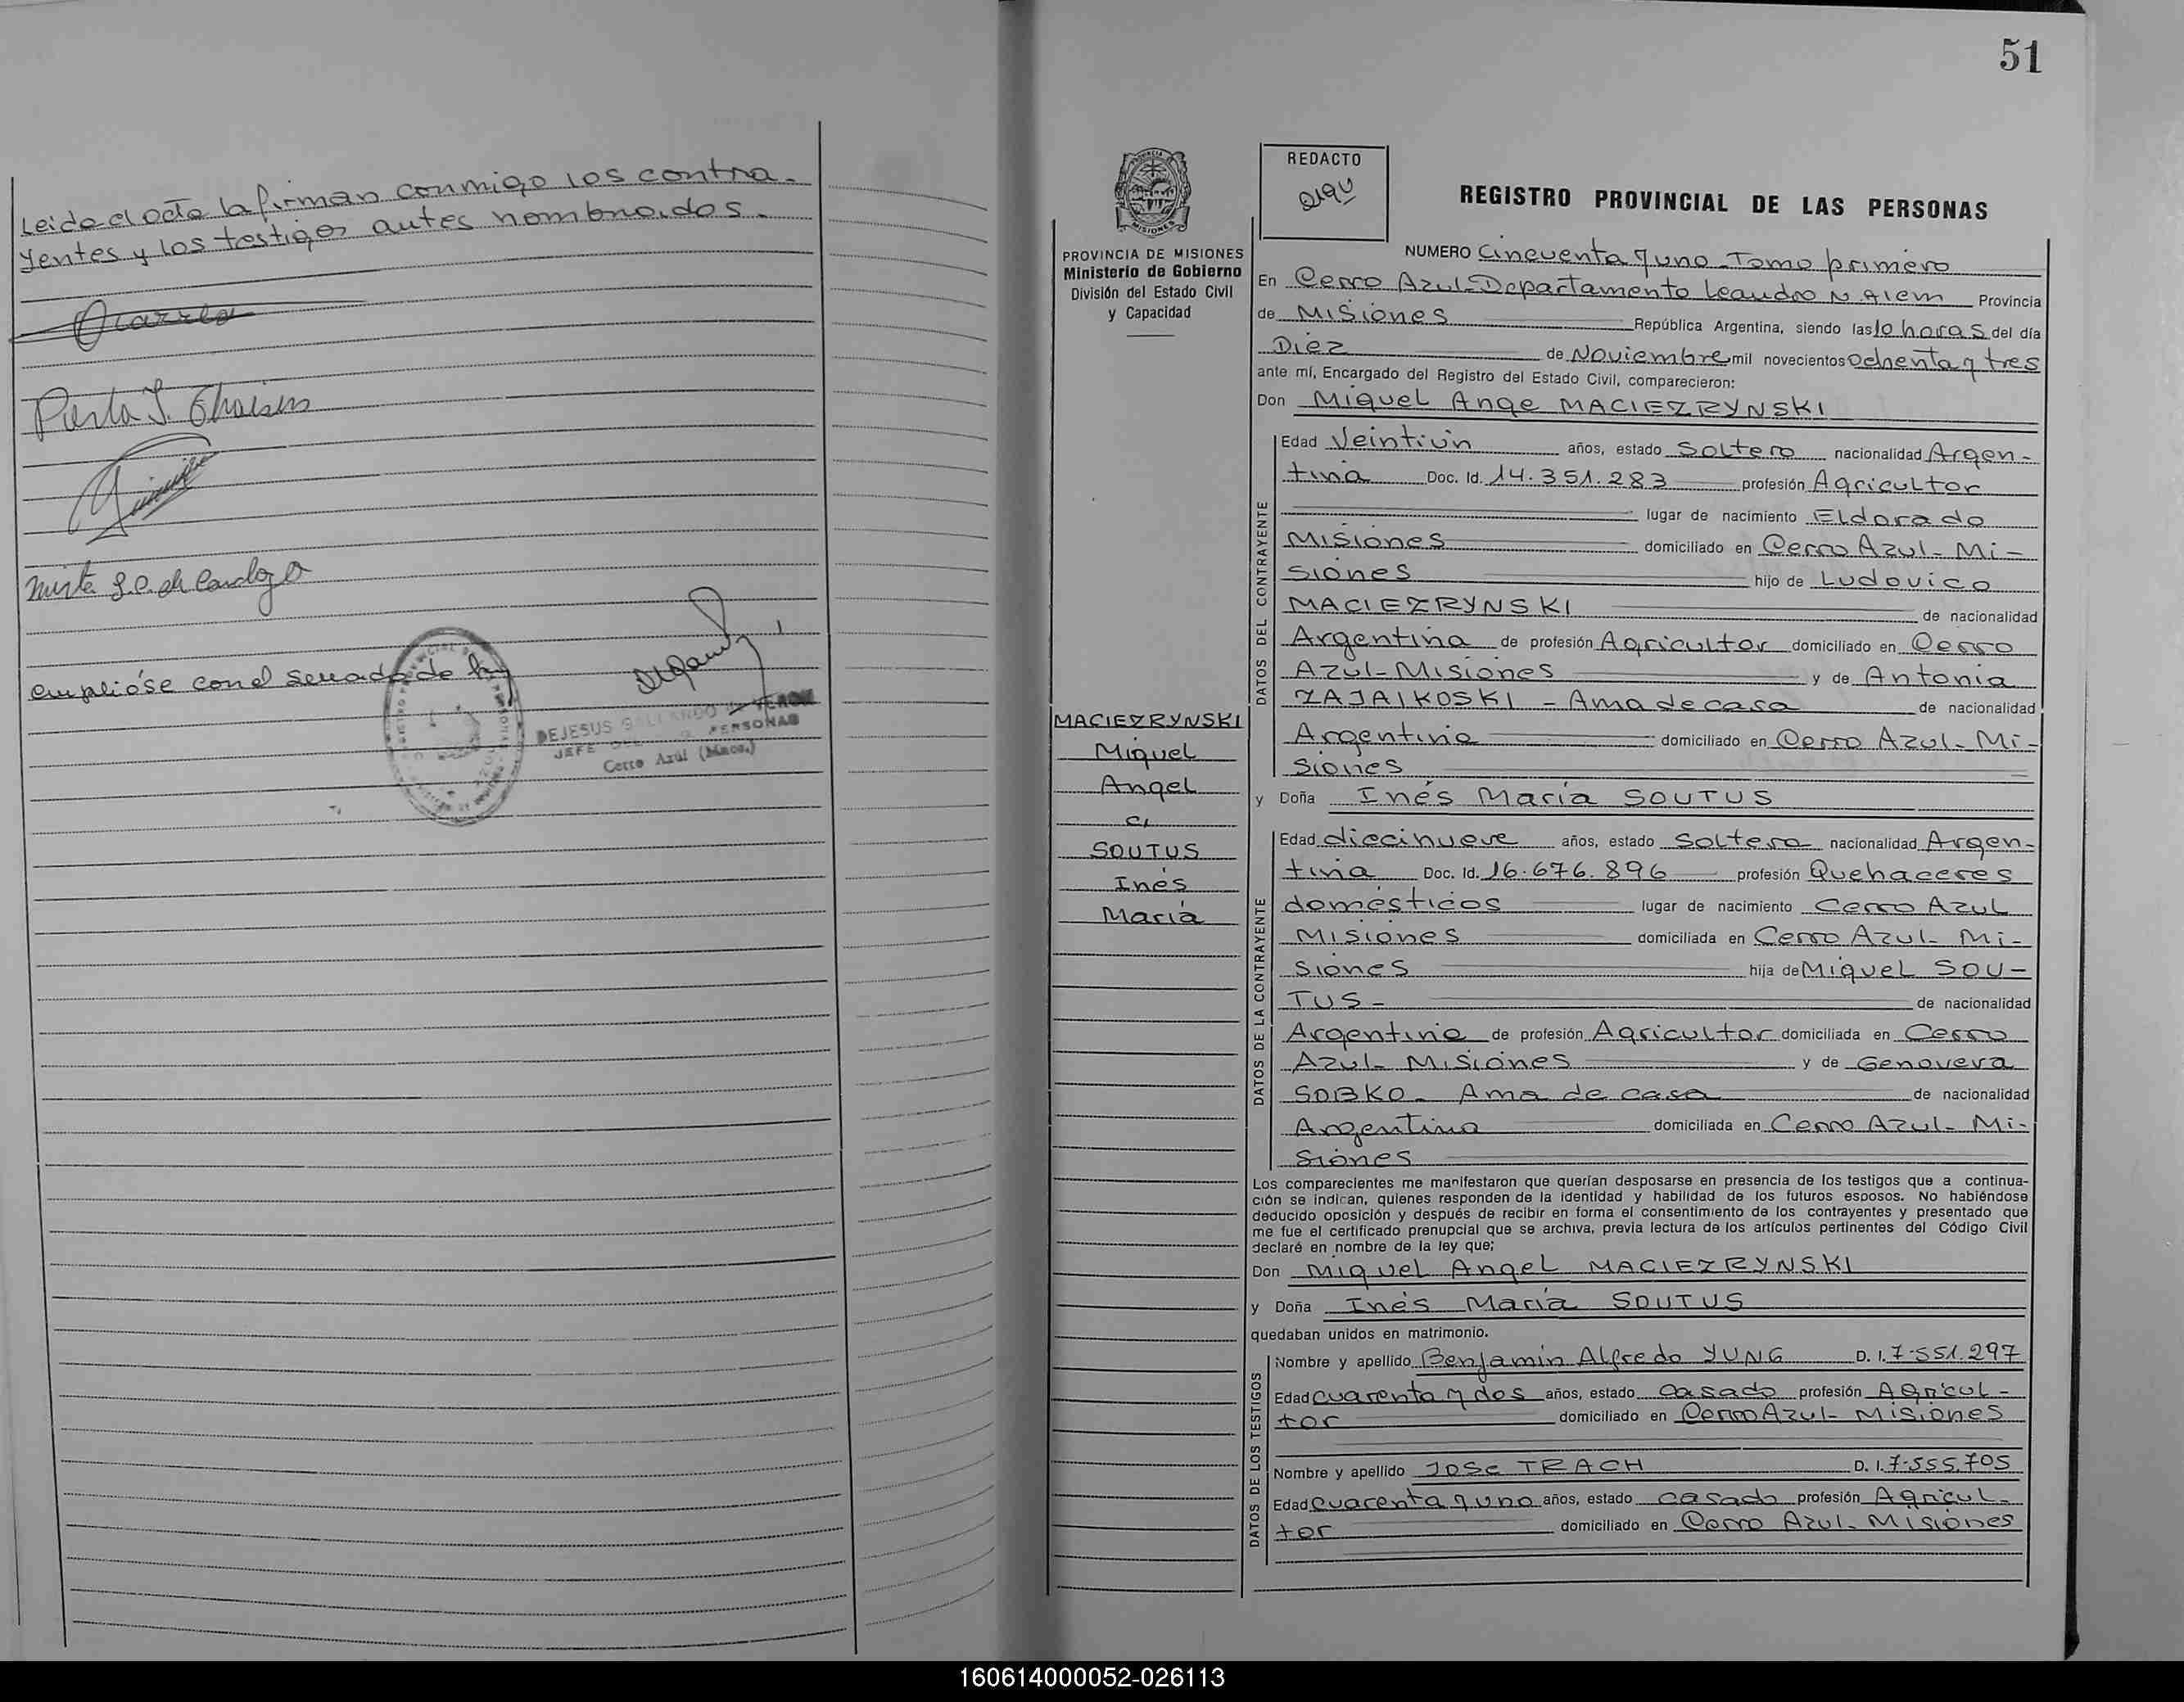 Leido el acta la firman conmigo los contra-
yentes y los testigos antes nombrados.
Mirta
cumplióse con el
DEJESUS
JEFE DEL PERSONAS
Cerro Azul (Mnes.)
51
PROVINCIA DE MISIONES
Ministerio de Gobierno
División del Estado Civil
y Capacidad
MACIEZRYNSKI
Miguel
Angel
c/
SOUTUS
Inés
María
REDACTO
REGISTRO PROVINCIAL DE LAS PERSONAS
NUMERO Cincuenta y uno - Tomo primero
En Cerro Azul - Departamento Leandro N Alem Provincia
de Misiones República Argentina, siendo las 10 horas del día
Diez de Noviembre mil novecientos Ochenta y tres
ante mí, Encargado del Registro del Estado Civil, comparecieron:
Don Miguel Ange MACIEZRYNSKI
DATOS DEL CONTRAYENTE
Edad Veintiún años, estado Soltero nacionalidad Argen-
tina Doc. Id. 14.351.283 profesión Agricultor
lugar de nacimiento Eldorado
Misiones domiciliado en Cerro Azul - Mi-
siones hijo de Ludovico
MACIEZRYNSKI de nacionalidad
Argentina de profesión Agricultor domiciliado en Cerro
Azul - Misiones y de Antonia
ZAJAIKOSKI - Ama de casa de nacionalidad
Argentina domiciliado en Cerro Azul - Mi-
siones
y Doña Inés María SOUTUS
DATOS DE LA CONTRAYENTE
Edad diecinueve años, estado Soltera nacionalidad Argen-
tina Doc. Id. 16.676.896 profesión Quehaceres
domésticos lugar de nacimiento Cerro Azul
Misiones domiciliada en Cerro Azul - Mi-
siones hija de Miguel SOU-
TUS - de nacionalidad
Argentina de profesión Agricultor domiciliada en Cerro
Azul - Misiones y de Genoveva
SOBKO - Ama de casa de nacionalidad
Argentina domiciliada en Cerro Azul - Mi-
siones
Los comparecientes me manifestaron que querían desposarse en presencia de los testigos que a continua-
ción se indican, quienes responden de la identidad y habilidad de los futuros esposos. No habiéndose
deducido oposición y después de recibir en forma el consentimiento de los contrayentes y presentado que
me fue el certificado prenupcial que se archiva, previa lectura de los artículos pertinentes del Código Civil
declaré en nombre de la ley que;
Don Miguel Angel MACIEZRYNSKI
y Doña Inés María SOUTUS
quedaban unidos en matrimonio.
DATOS DE LOS TESTIGOS
Nombre y apellido Benjamín Alfredo YUNG D. I. 7.551.297
Edad cuarenta y dos años, estado casado profesión Agricul-
tor domiciliado en Cerro Azul - Misiones
Nombre y apellido José TRACH D. I. 7.555.705
Edad cuarenta y uno años, estado casado profesión Agricul-
tor domiciliado en Cerro Azul - Misiones
160614000052-026113